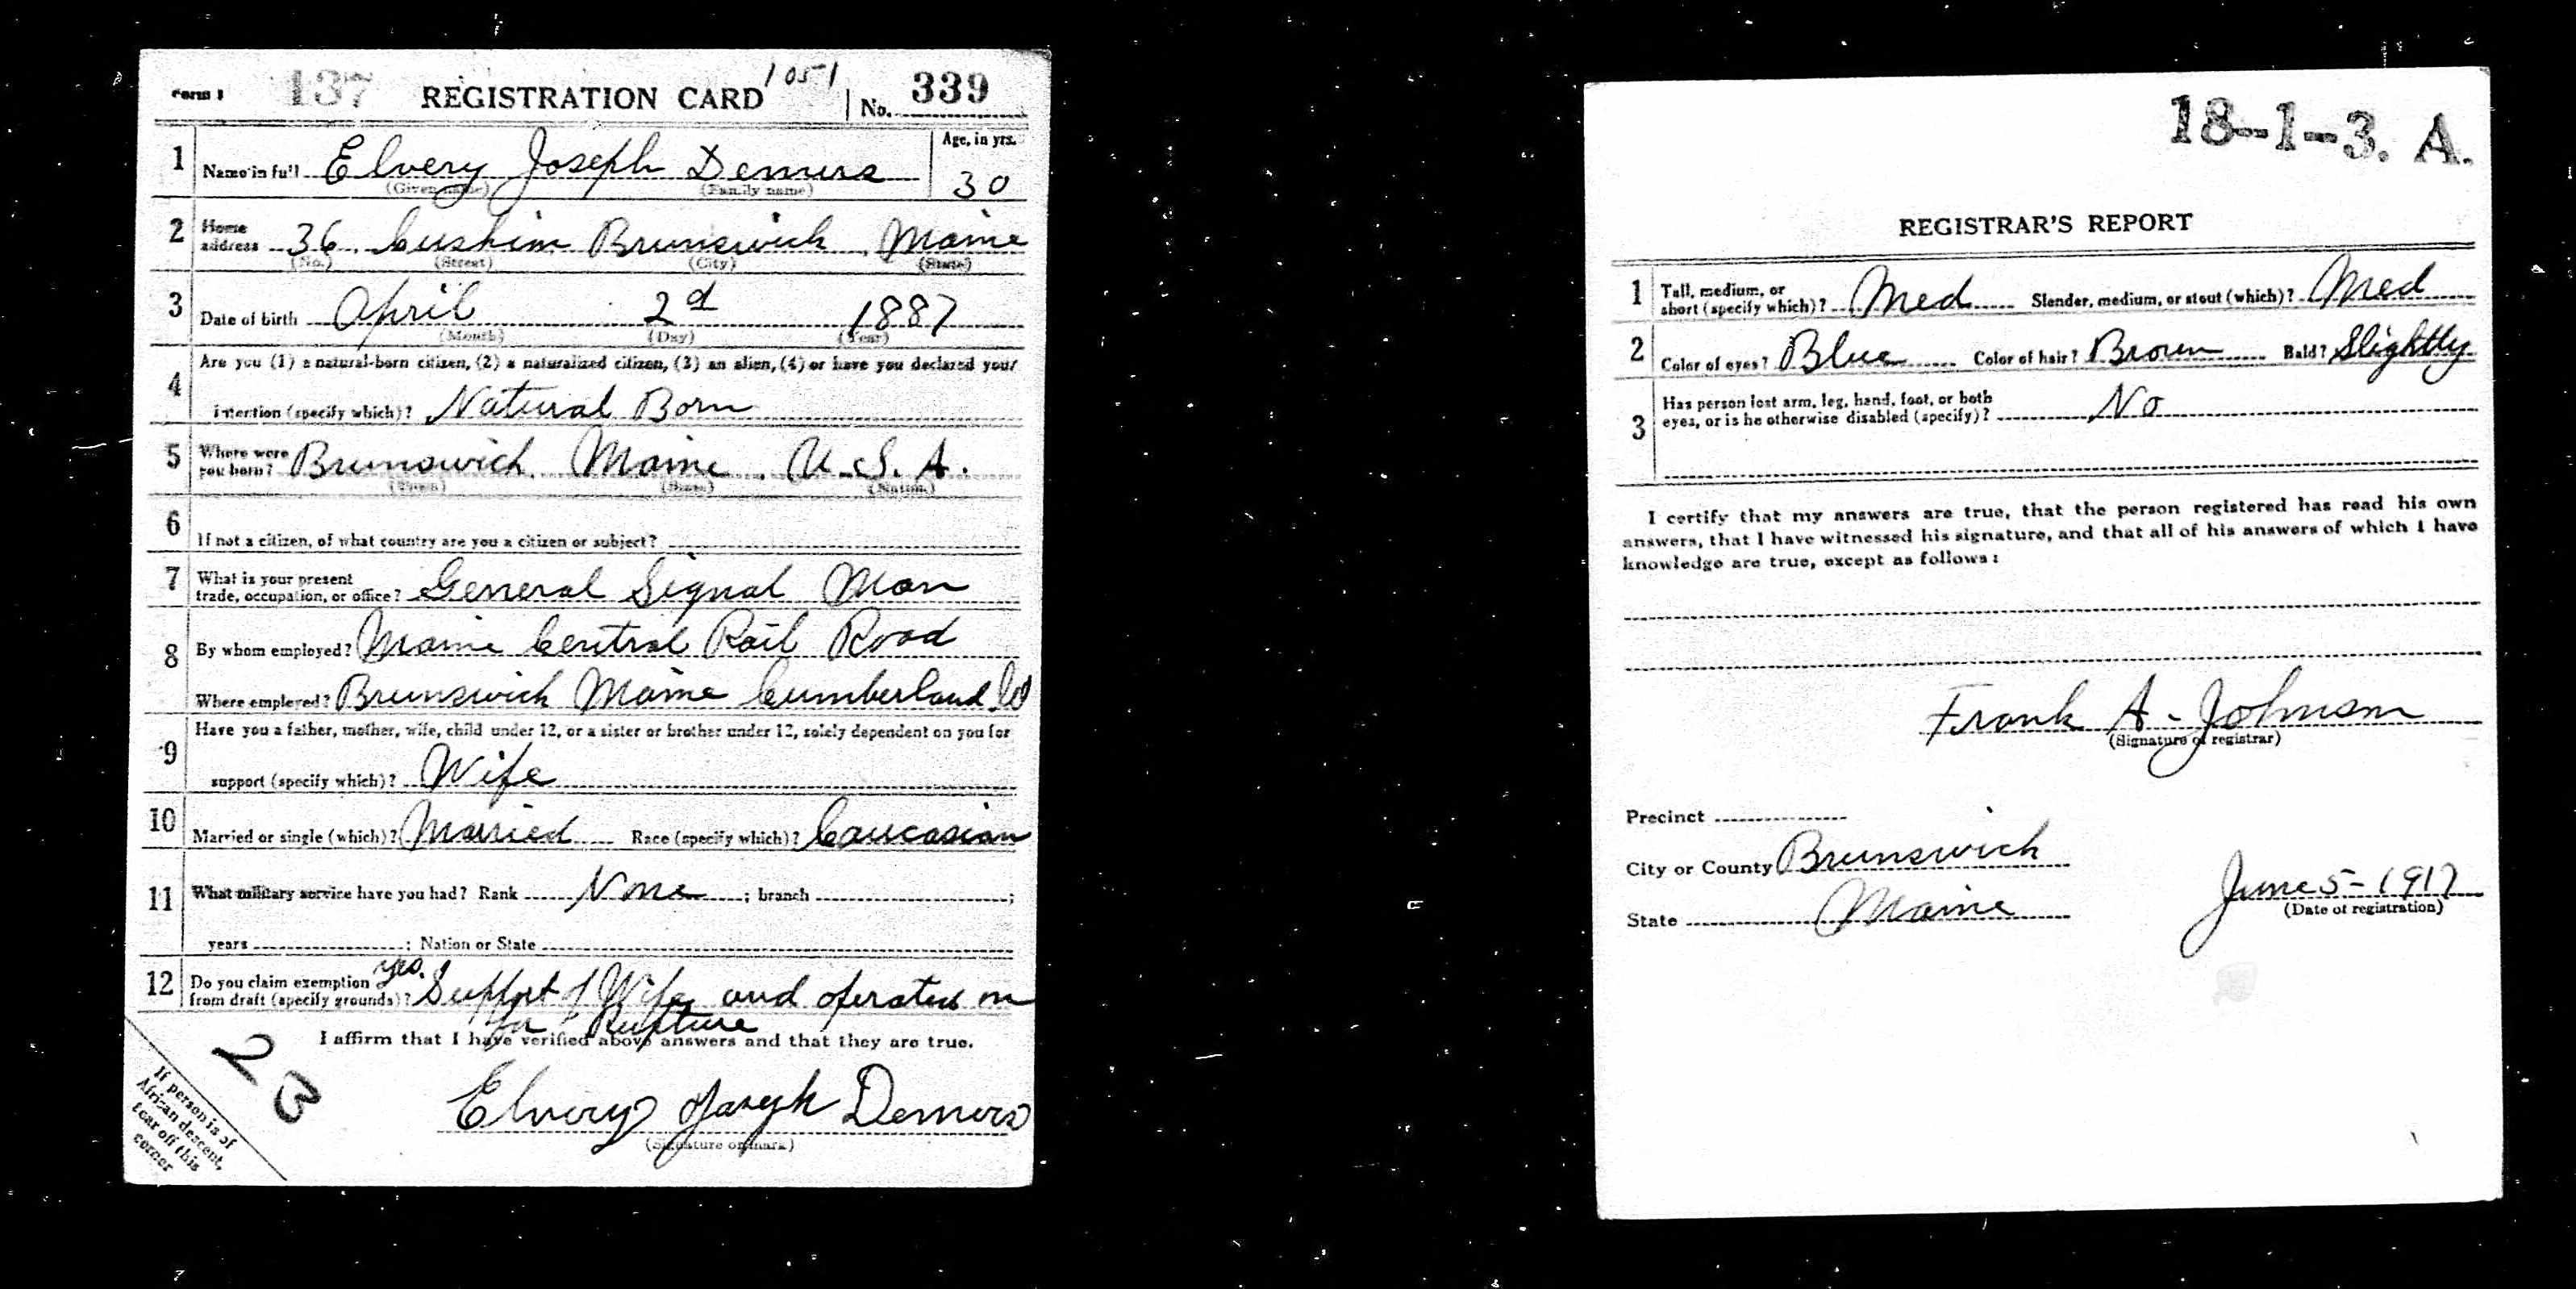 Form 1 137 REGISTRATION CARD 1051 No. 339
1 Name in full Elvery Joseph Demers Age, in yrs.
(Given name) (Family name) 30
2 Home address 36 Cushim Brunswick Maine
(No.) (Street) (City) (State)
3 Date of birth April 2d 1887
(Month) (Day) (Year)
4 Are you (1) a natural-born citizen, (2) a naturalized citizen, (3) an alien, (4) or have you declared your
intention (specify which)? Natural Born
5 Where were you born? Brunswick Maine U.S.A.
(Town) (State) (Nation)
6 If not a citizen, of what country are you a citizen or subject?
7 What is your present
trade, occupation, or office? General Signal Man
8 By whom employed? Maine Central Rail Road
Where employed? Brunswick Maine Cumberland Co
9 Have you a father, mother, wife, child under 12, or a sister or brother under 12, solely dependent on you for
support (specify which)? Wife
10 Married or single (which)? Married Race (specify which)? Caucasian
11 What military service have you had? Rank None ; branch ;
years ; Nation or State
12 Do you claim exemption yes.
from draft (specify grounds)? Support of Wife and operated on
for Rupture
I affirm that I have verified above answers and that they are true.
23
Elvery Joseph Demers
(Signature or mark)
If person is of
African descent,
tear off this
corner
18-1-3. A.
REGISTRAR'S REPORT
1 Tall, medium, or
short (specify which)? Med Slender, medium, or stout (which)? Med
2 Color of eyes? Blue Color of hair? Brown Bald? Slightly
3 Has person lost arm, leg, hand, foot, or both
eyes, or is he otherwise disabled (specify)? No
I certify that my answers are true, that the person registered has read his own
answers, that I have witnessed his signature, and that all of his answers of which I have
knowledge are true, except as follows:
Frank A. Johnson
(Signature of registrar)
Precinct
City or County Brunswick
State Maine
June 5-1917
(Date of registration)